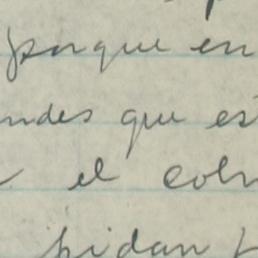 porque en
ndes que es
el
pidan